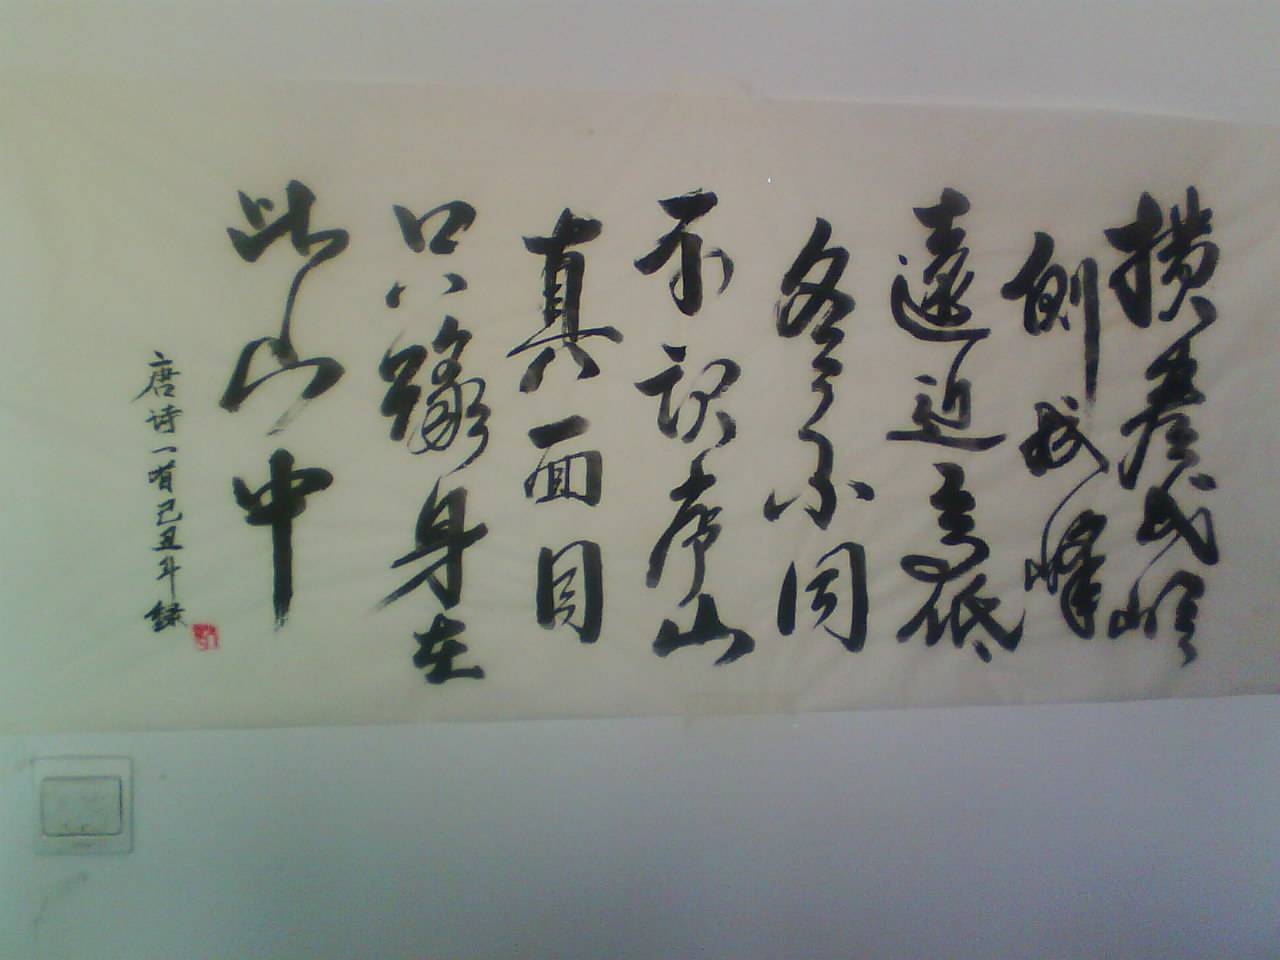 横看成岭
侧成峰
遠近高低
各各不同
不识庐山
真面目
只缘身在
此山中
唐诗一首己丑年録